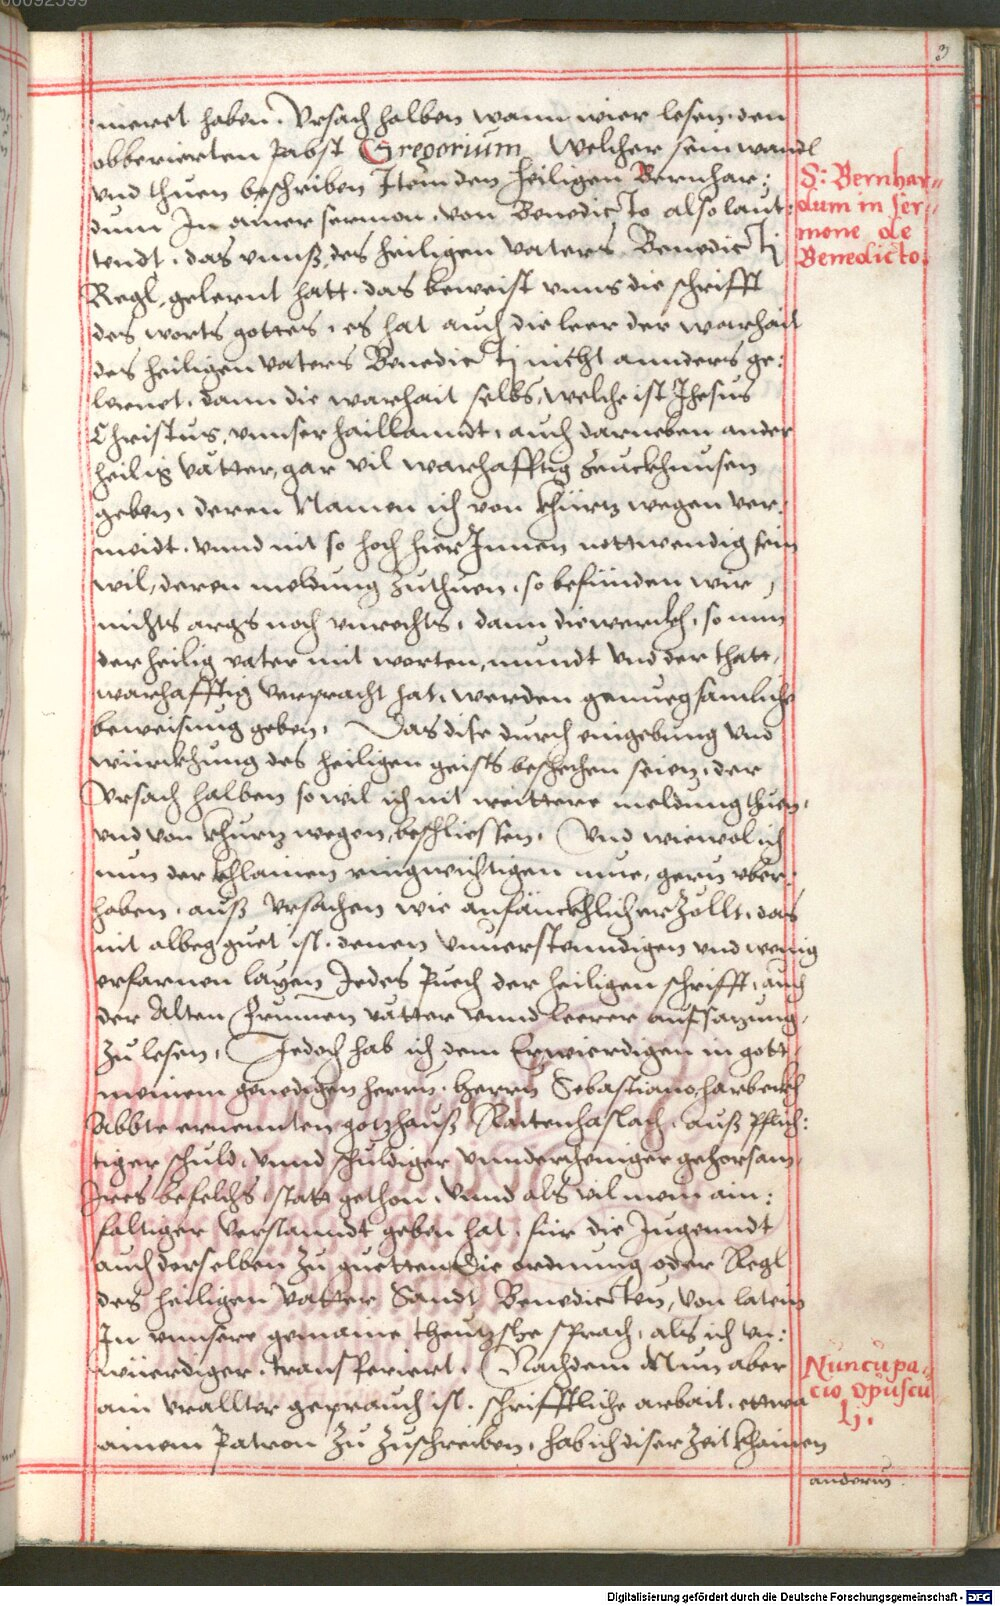 3
meret haben. Vrsach halben wann wier lesen den
obberierten Pabst Gregorium Welcher sein wandl
vnd thuen beschriben Item den heiligen Bernhar:
dum In ainer sermon, von Benedicto also laut:
tendt, das vnnß des heiligen vaters Benedicti
Regl, gelernt hatt, das beweist vnns die schrifft
des worts gottes, es hat auch die leer der warhait
des heiligen vaters Benedicti nicht annders ge:
lernet, dann die warhait selbs, welche ist Jhesus
Christus, vnnser haillanndt, auch darneben ander
heilig vätter, gar vil warhafftig zeuckhnusen
geben, deren Namen ich von khürtz wegen ver:
meidt, vnnd nit so hoch hier Innen nottwendig sein
wil, deren meldung zuthuen, so befünden wir
nichts args noch vnrechts, dann die werckh, so nun
der heilig vater mit worten, mundt vnd der thatt,
warhafftig verpracht hat, werden genuegsamliche
beweisung geben, Das dise durch eingebung vnd
würckhung des heiligen geists beschehen seien, der
Vrsach halben so wil ich nit weittere meldung thuen,
vnd von khurtz wegen, beschliessen. Vnd wiewol ich
nun der khlainen ringwichtigen mue, gern vber:
haben, auß Vrsachen wie anfänckhlich erzöllt, das
nit albeg guet ist, denen vnuerstenndigen vnd wenig
erfarnen layen Jedes Puech der heiligen schrifft, auch
der Alten frummen vätter vnnd leerer aufsatzung,
zu lesen, Jedoch hab ich dem Erwierdigen in gott
meinem genedigen herrn, herrn Sebastiano harbeckh
Abbte ernennten gotzhauß Raittenhaslach, auß pflich:
tiger schuld, vnnd schuldiger vnndertheniger gehorsam,
Ires befelchs, statt gethon, vnnd als vil mein ain:
faltiger verstanndt geben hat, für die Jugenndt
auch derselben zu guetten, die ordnung oder Regl
des heiligen vatter Sandt Benedicten, von latein
In vnnsere gemaine theutzsche sprach, als ich vn:
wüerdiger, transferiert, Nachdem Nun aber
ain vrallter geprauch ist, schrifftliche arbait, ettwa
ainem Patron zu zuschreiben, hab ich diser zeit khainen
S: Bernhar=
dum in ser=
mone de
Benedicto.
Nuncupa=
cio opuscu
lj.
anderen
Digitalisierung gefördert durch die Deutsche Forschungsgemeinschaft - DFG